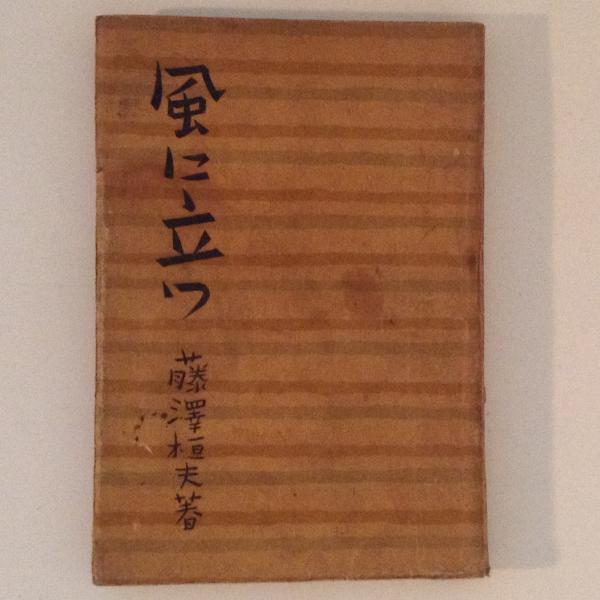 風に立つ
藤澤桓夫著